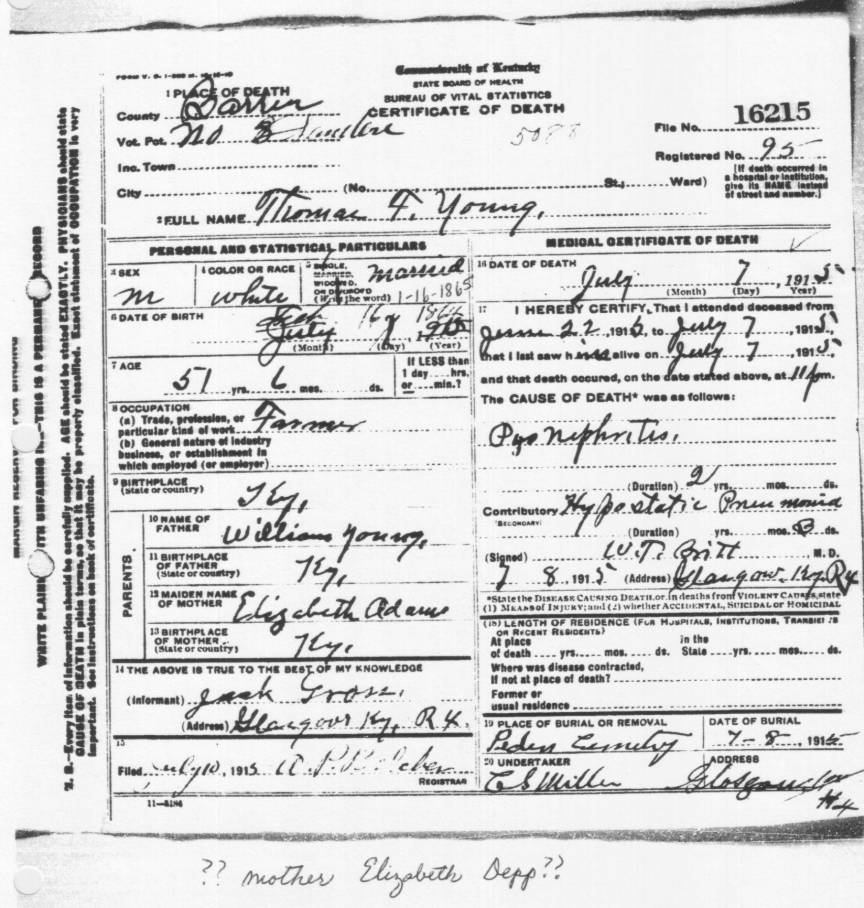 FORM V. S. 1-
Commonwealth of Kentucky
STATE BOARD OF HEALTH
BUREAU OF VITAL STATISTICS
CERTIFICATE OF DEATH
1 PLACE OF DEATH
County Barren
Vot. Pct. No
Inc. Town
City (No. St.; Ward)
5088
File No. 16215
Registered No. 95
[If death occurred in
a hospital or institution,
give its NAME instead
of street and number.]
2 FULL NAME Thomas F. Young,
PERSONAL AND STATISTICAL PARTICULARS
3 SEX
m
4 COLOR OR RACE
white
5 SINGLE,
MARRIED,
WIDOWED,
OR DIVORCED
(Write the word)
married
1-16-1865
6 DATE OF BIRTH
16 1864
July
(Month) (Day) (Year)
7 AGE
51 yrs. 6 mos. ds.
If LESS than
1 day hrs.
or min.?
8 OCCUPATION
(a) Trade, profession, or
particular kind of work Farmer
(b) General nature of industry
business, or establishment in
which employed (or employer)
9 BIRTHPLACE
(State or country)
Ky,
PARENTS
10 NAME OF
FATHER
William Young,
11 BIRTHPLACE
OF FATHER
(State or country)
Ky,
12 MAIDEN NAME
OF MOTHER
Elizabeth Adams
13 BIRTHPLACE
OF MOTHER
(State or country)
Ky.
14 THE ABOVE IS TRUE TO THE BEST OF MY KNOWLEDGE
(Informant) Jack Gross.
(Address) Glasgow Ky, R4.
15
Filed July 10, 1915
REGISTRAR
11-3184
MEDICAL CERTIFICATE OF DEATH
16 DATE OF DEATH
July 7, 1915
(Month) (Day) (Year)
17 I HEREBY CERTIFY, That I attended deceased from
June 22, 1915, to July 7, 1915,
that I last saw him alive on July 7, 1915,
and that death occured, on the date stated above, at 11 pm.
The CAUSE OF DEATH* was as follows:
Pyo nephritis.
(Duration) 2 yrs. mos. ds.
Contributory Hypostatic Pneumonia
(SECONDARY)
(Duration) yrs. mos. ds.
(Signed) W.T. Britt M. D.
7 8, 1915 (Address) Glasgow. Ky. R4
*State the DISEASE CAUSING DEATH, or, in deaths from VIOLENT CAUSES, state
(1) MEANS of INJURY; and (2) whether ACCIDENTAL, SUICIDAL or HOMICIDAL
(18) LENGTH OF RESIDENCE (FOR HOSPITALS, INSTITUTIONS, TRANSIENTS
OR RECENT RESIDENTS)
At place In the
of death yrs. mos. ds. State yrs. mos. ds.
Where was disease contracted,
if not at place of death?
Former or
usual residence
19 PLACE OF BURIAL OR REMOVAL
Peden Cemetry
DATE OF BURIAL
7-8, 1915
20 UNDERTAKER
C S Miller
ADDRESS
Glasgow
R4
WRITE PLAIN WITH UNFADING THIS IS A PERMANENT RECORD
N. B.—Every item of information should be carefully supplied. AGE should be stated EXACTLY. PHYSICIANS should state
CAUSE OF DEATH in plain terms, so that it may be properly classified. Exact statement of OCCUPATION is very
important. See instructions on back of certificate.
?? mother Elizabeth Depp??